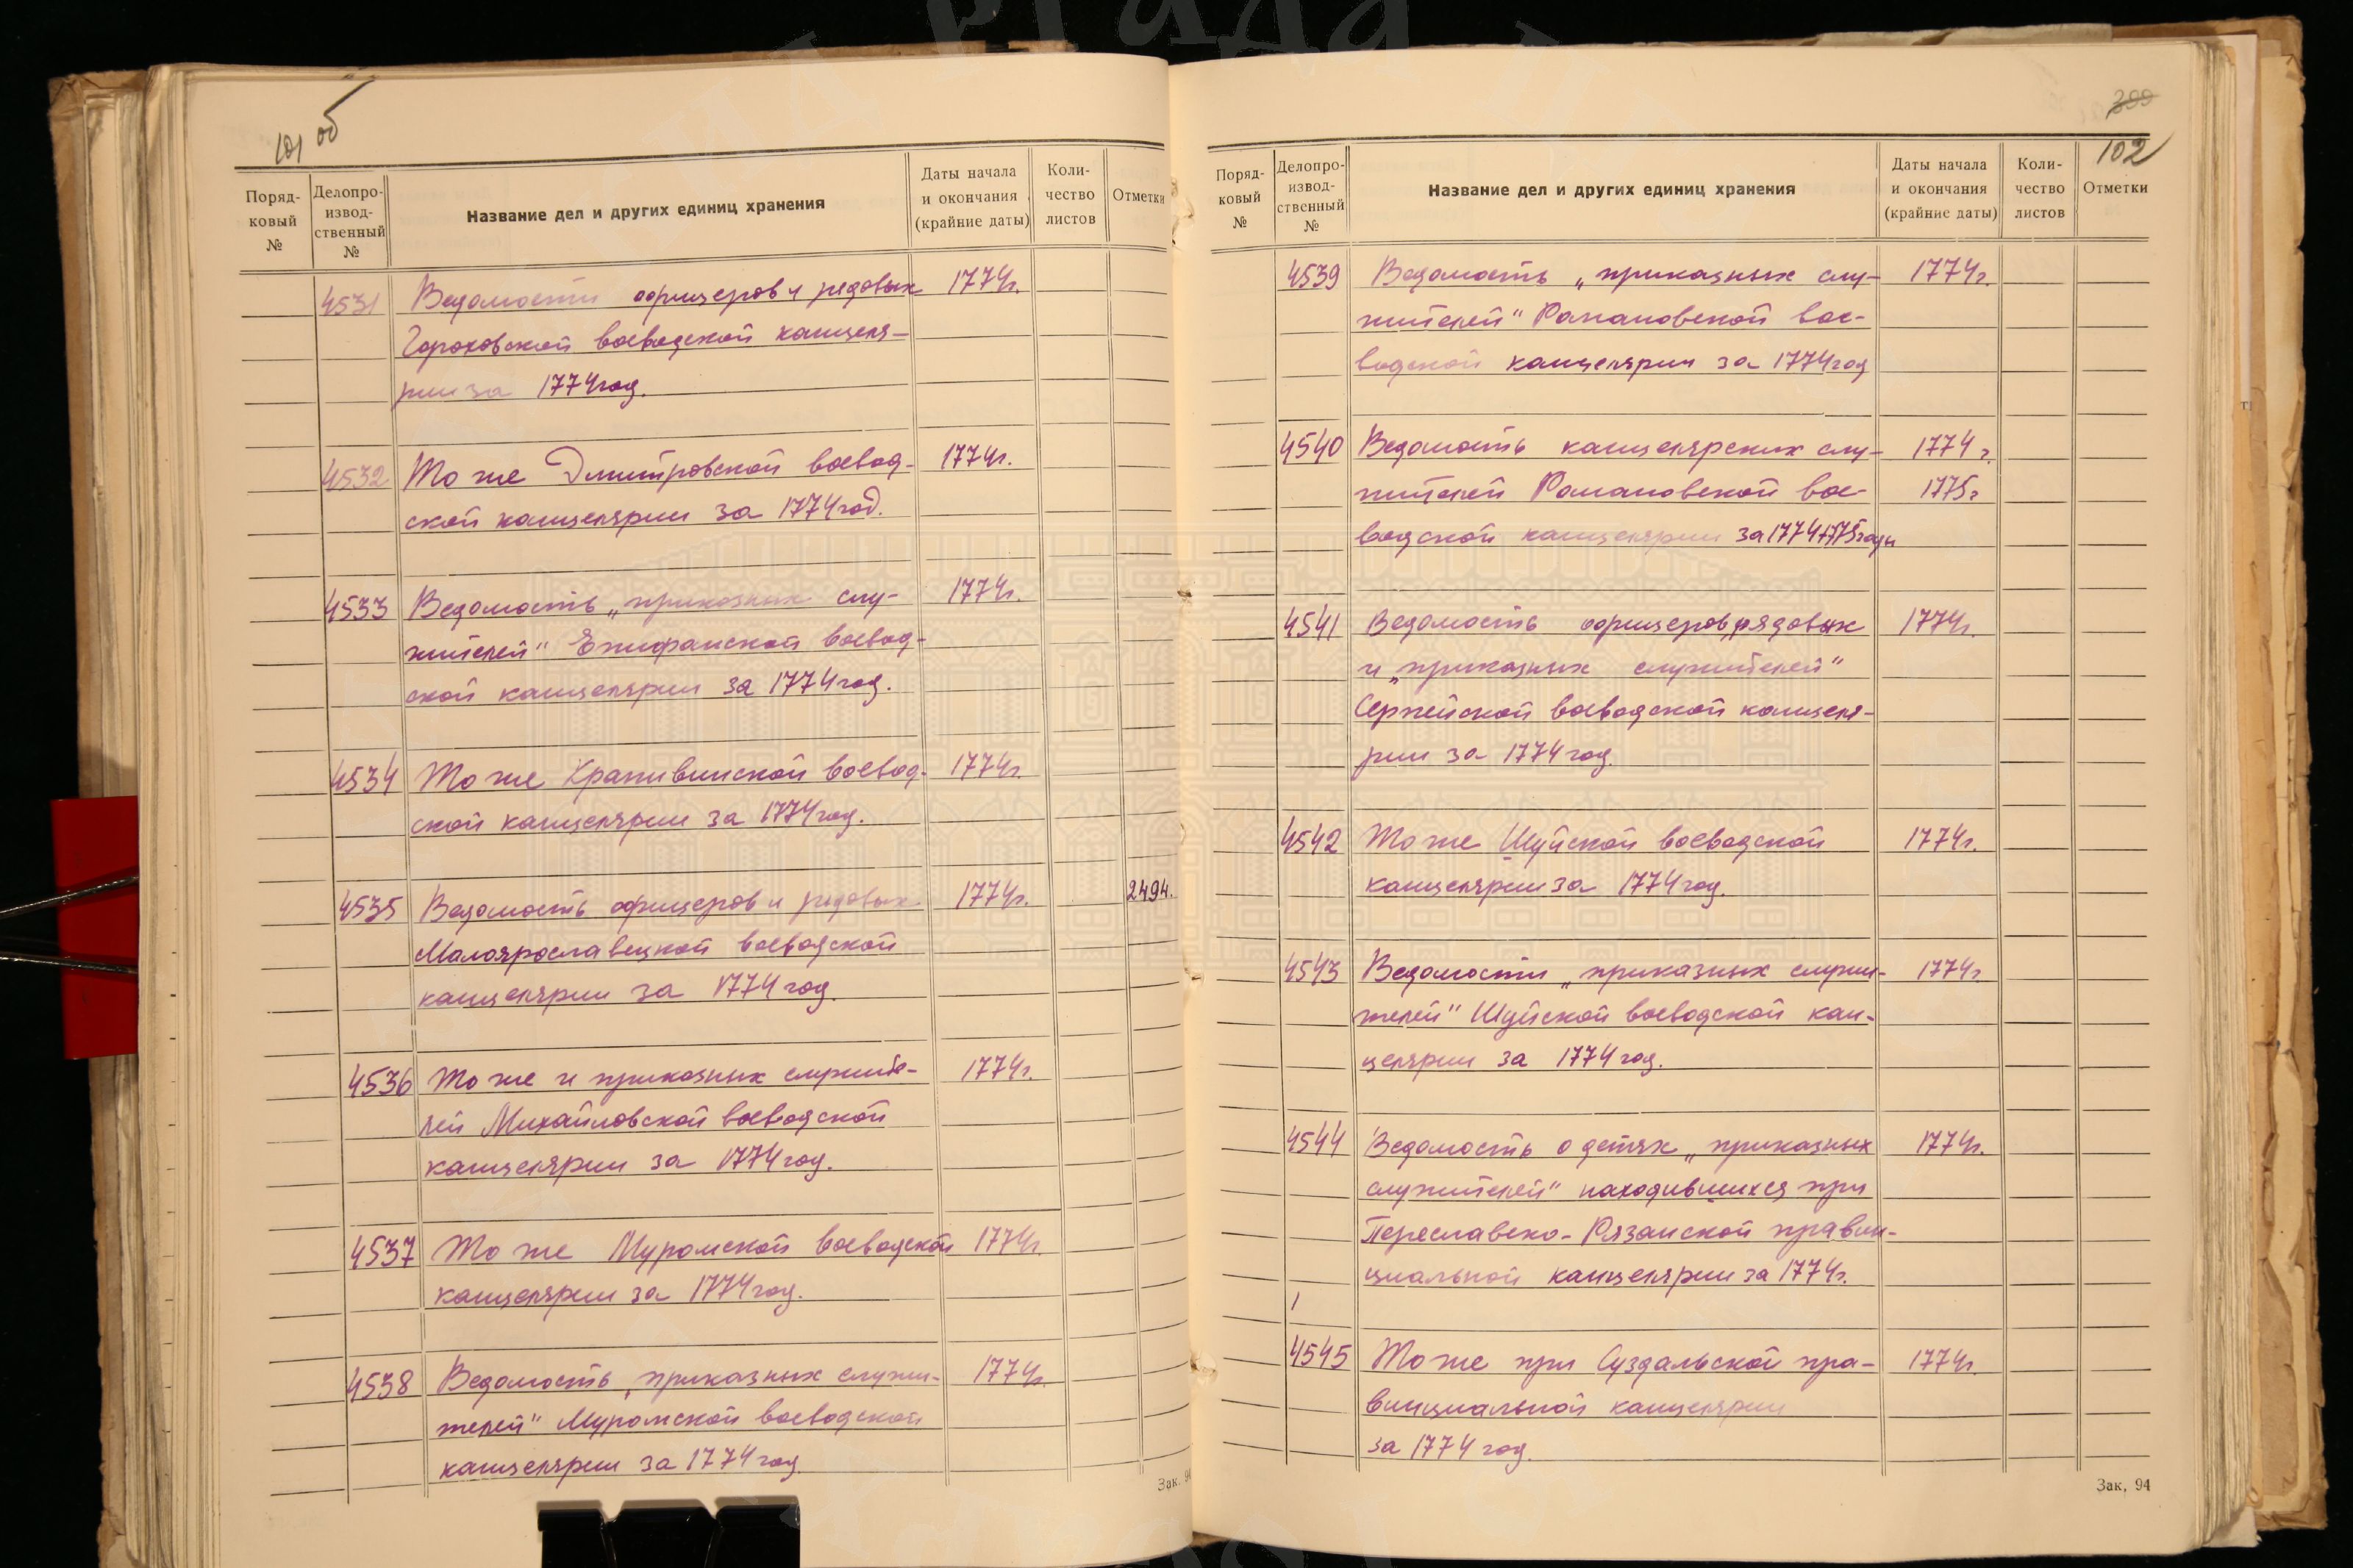 101 об
Поряд-
ковый
№
Делопро-
извод-
ственный
№
Название дел и других единиц хранения
Даты начала
и окончания
(крайние даты)
Коли-
чество
листов
Отметки
4531 Ведомости офицеров и рядовых 1774г.
Гороховской воеводской канцеля-
рии за 1774 год.
4532 То же Дмитровской воевод- 1774г.
ской канцелярии за 1774 год.
4533 Ведомость „приказных слу- 1774г.
жителей" Епифанской воевод-
ской канцелярии за 1774 год.
4534 То же Крапивинской воевод- 1774г.
ской канцелярии за 1774 год.
4535 Ведомость офицеров и рядовых 1774г. 2494.
Малоярославецкой воеводской
канцелярии за 1774 год.
4536 То же и приказных служите- 1774г.
лей Михайловской воеводской
канцелярии за 1774 год.
4537 То же Муромской воеводской 1774г.
канцелярии за 1774 год.
4538 Ведомость „приказных служи- 1774г.
телей" Муромской воеводской
канцелярии за 1774 год.
Зак. 94
399
102
Поряд-
ковый
№
Делопро-
извод-
ственный
№
Название дел и других единиц хранения
Даты начала
и окончания
(крайние даты)
Коли-
чество
листов
Отметки
4539 Ведомость „приказных слу- 1774г.
жителей" Романовской вое-
водской канцелярии за 1774 год
4540 Ведомость канцелярских слу- 1774 г.
жителей Романовской вое- 1775г
водской канцелярии за 1774-1775 годы
4541 Ведомость офицеров, рядовых 1774г.
и „приказных служителей"
Серпейской воеводской канцеля-
рии за 1774 год.
4542 То же Шуйской воеводской 1774г.
канцелярии за 1774 год.
4543 Ведомости „приказных служи- 1774г.
телей" Шуйской воеводской кан-
целярии за 1774 год.
4544 Ведомость о детях „приказных 1774г.
служителей" находившихся при
Переславско-Рязанской правин-
циальной канцелярии за 1774г.
4545 То же при Суздальской пра- 1774г.
винциальной канцелярии
за 1774 год.
Зак, 94